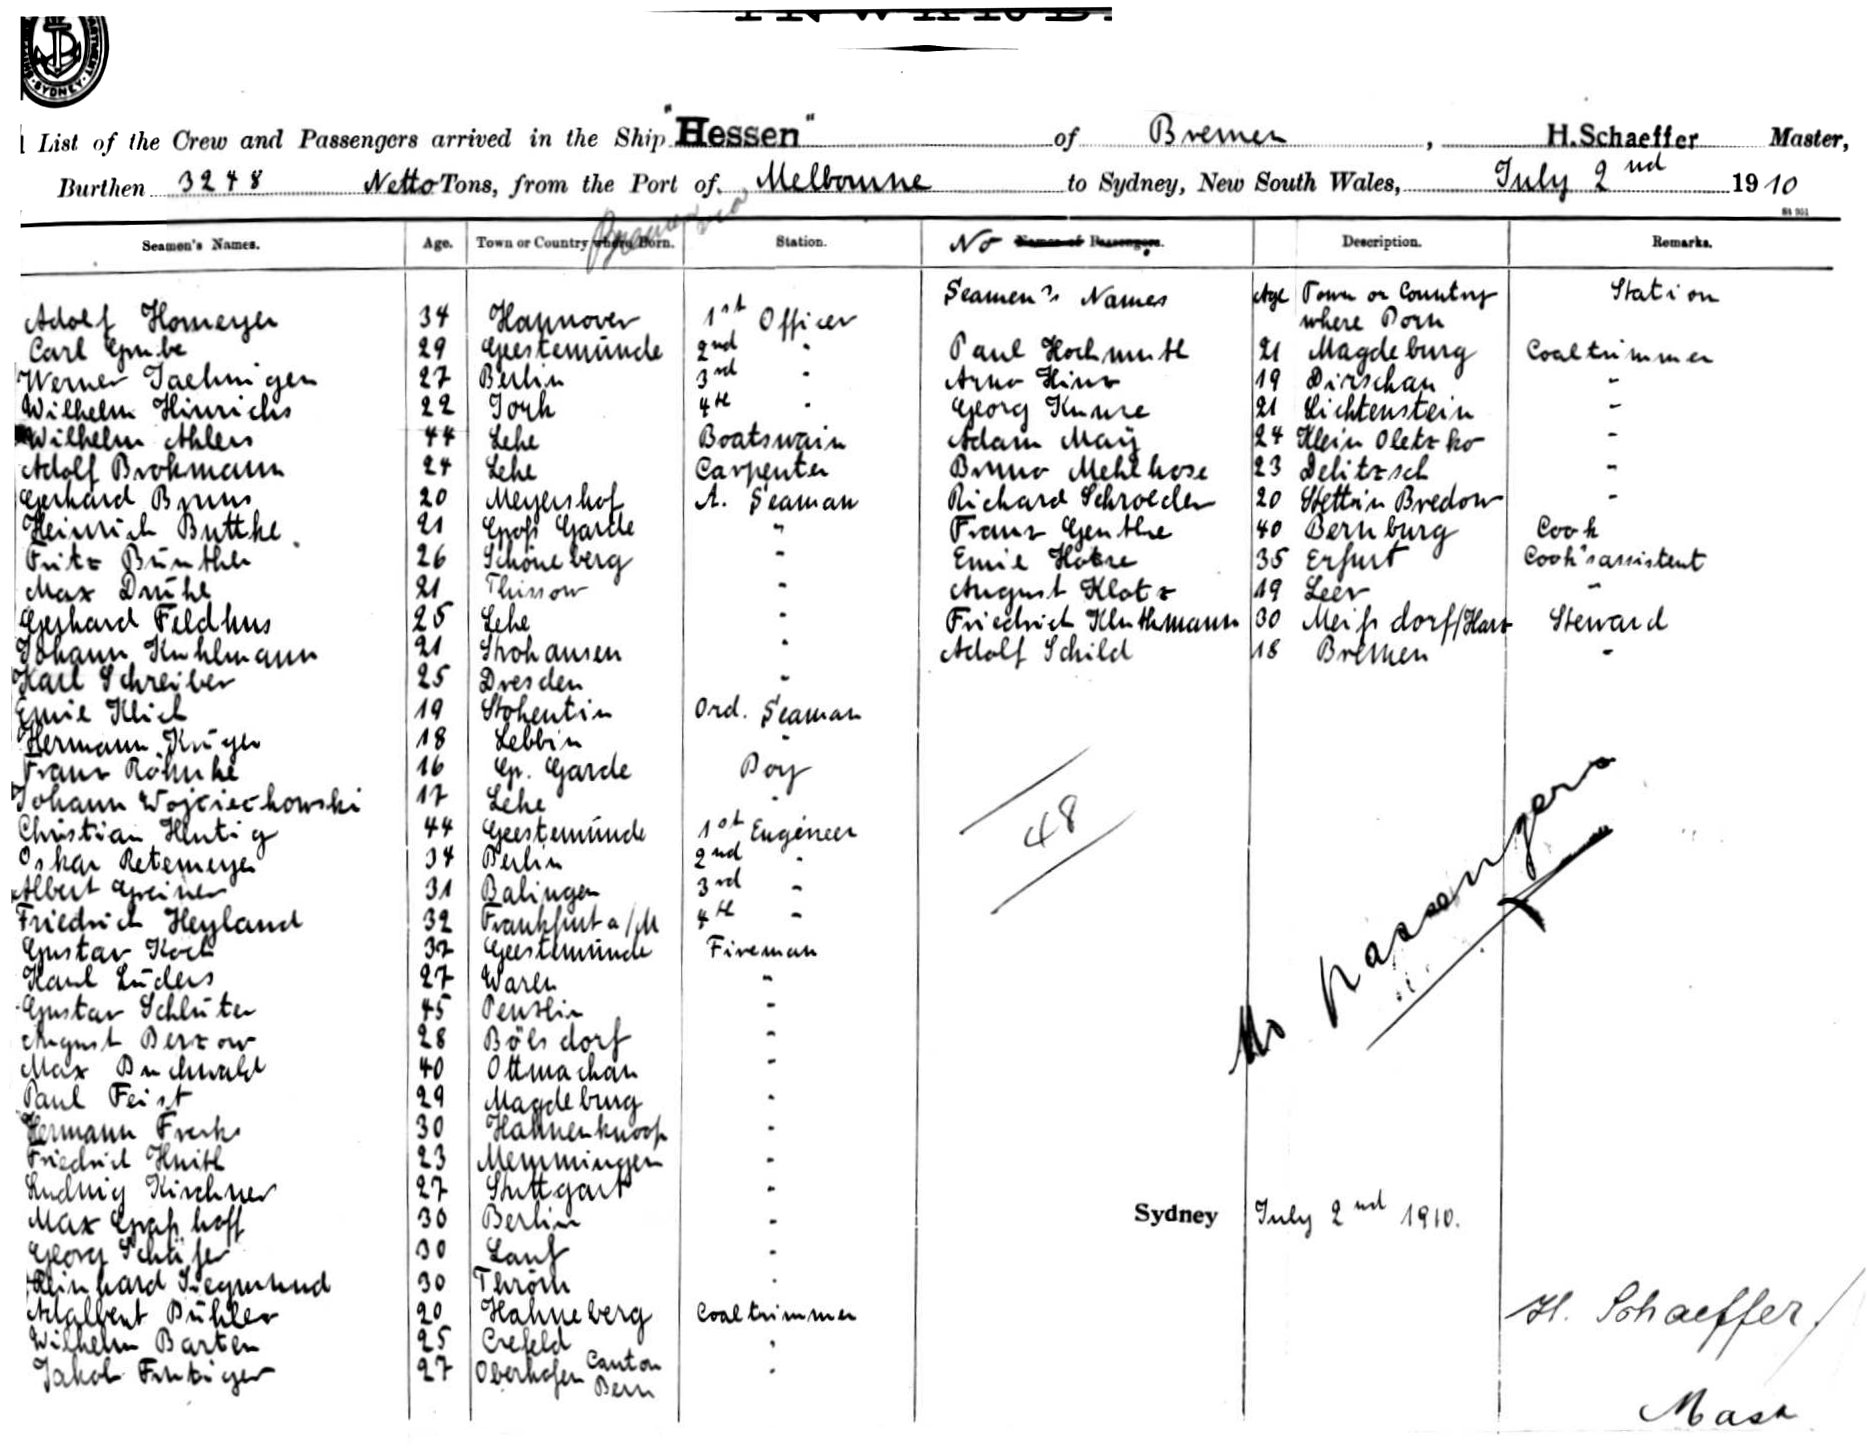 SYDNEY
List of the Crew and Passengers arrived in the Ship "Hessen" of Bremen, H. Schaeffer Master,
Burthen 3248 Netto Tons, from the Port of Melbourne to Sydney, New South Wales, July 2nd 1910
Seamen's Names. Age. Town or Country where Born. Station. No Names of Passengers. Description. Remarks.
Seamen's Names Age Town or Country where Born Station
Adolf Homeyer 34 Hannover 1st Officer
Carl Grube 29 Geestemünde 2nd "
Werner Jaehnigen 27 Berlin 3rd "
Wilhelm Hinrichs 22 Jork 4th "
Wilhelm Ahlers 44 Lehe Boatswain
Adolf Brokmann 24 Lehe Carpenter
Gerhard Bruns 20 Meyershof A. Seaman
Heinrich Buttke 21 Groß Garde "
Fritz Bünther 26 Schöneberg "
Max Drühl 21 Thissow "
Gerhard Feldhus 25 Lehe "
Johann Kuhlmann 21 Strohausen "
Karl Schreiber 25 Dresden "
Emil Klick 19 Stohentin Ord. Seaman
Hermann Krüger 18 Lebbin "
Franz Röhnke 16 Gr. Garde Boy
Johann Wojciechowski 17 Lehe "
Christian Hentig 44 Geestemünde 1st Engineer
Oskar Retemeyer 34 Berlin 2nd "
Albert Greiner 31 Balingen 3rd "
Friedrich Heyland 32 Frankfurt a/M 4th "
Gustav Koch 37 Geestemünde Fireman
Karl Lüders 27 Waren "
Gustav Schlüter 45 Penzlin "
August Berzow 28 Bölsdorf "
Max Buchwald 40 Ottmachau "
Paul Feist 29 Magdeburg "
Hermann Frerks 30 Hahnenknoop "
Friedrich Hnith 23 Memmingen "
Ludwig Kirchner 27 Stuttgart "
Max Graßhoff 30 Berlin "
Georg Schäfer 30 Lauf "
Reinhard Siegmund 30 Thröm "
Adalbert Bühler 20 Hahneberg Coaltrimmer
Wilhelm Barten 25 Crefeld "
Jakob Frutiger 27 Oberhofen Canton Bern "
Paul Hochmuth 21 Magdeburg Coaltrimmer
Arno Hinz 19 Dirschau "
Georg Kunze 21 Lichtenstein "
Adam May 24 Klein Oletzko "
Bruno Mehlhose 23 Delitzsch "
Richard Schroeder 20 Stettin Bredow "
Franz Genthe 40 Bernburg Cook
Emil Hotze 35 Erfurt Cook's assistent
August Klotz 19 Leer "
Friedrich Kluthmann 30 Meißdorf/Harz Steward
Adolf Schild 18 Bremen "
48
No passengers
Sydney July 2nd 1910.
H. Schaeffer
Mast